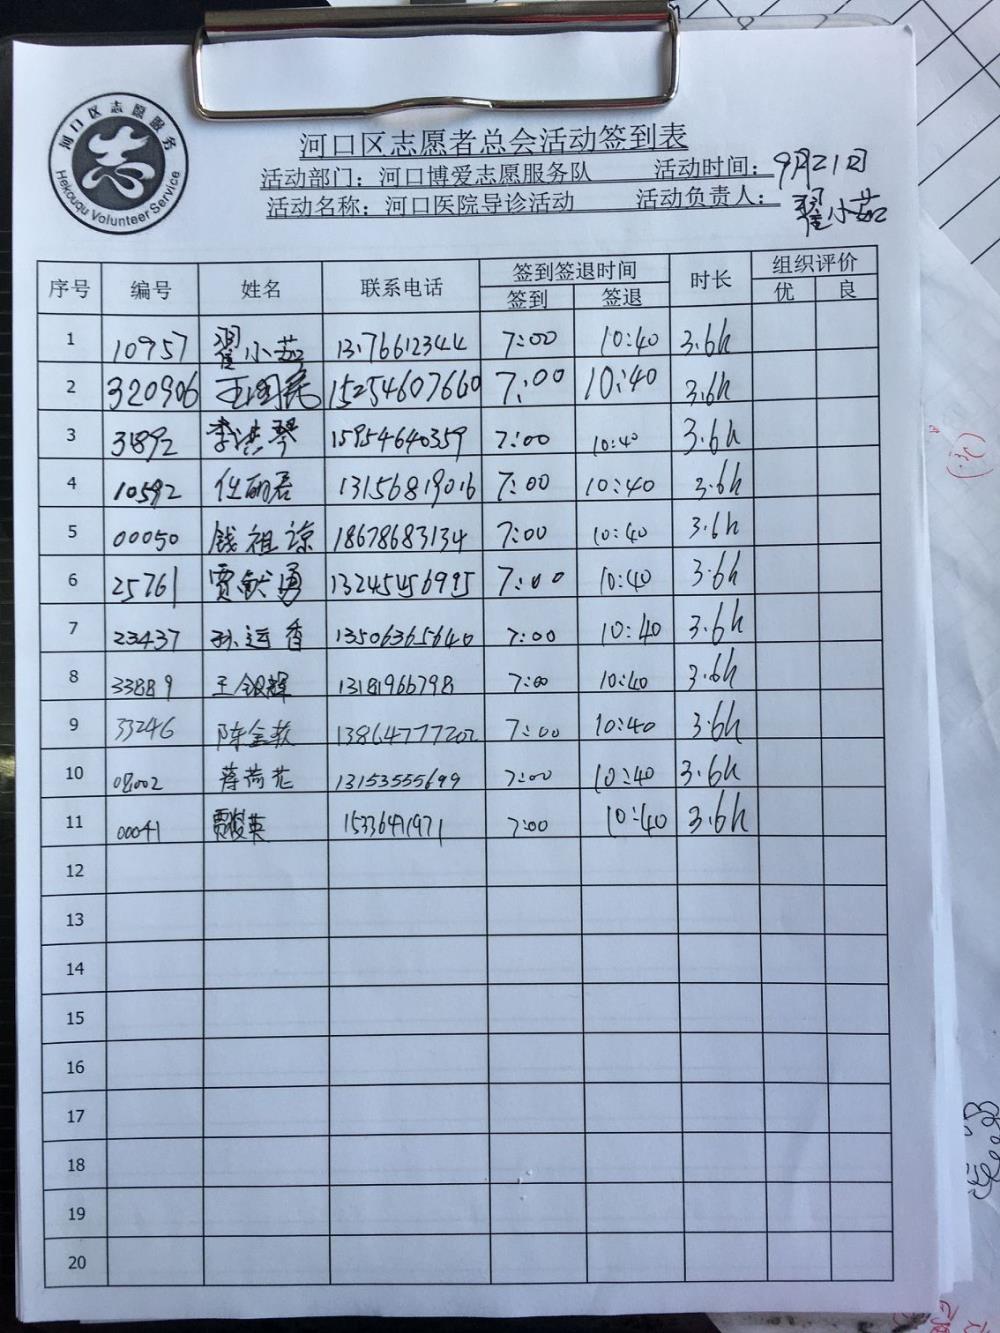 河口区志愿服务
志
Hekouqu Volunteer Service
河口区志愿者总会活动签到表
活动部门：河口博爱志愿服务队 活动时间：9月21日
活动名称：河口医院导诊活动 活动负责人：翟小茹
序号 编号 姓名 联系电话 签到签退时间 时长 组织评价
签到 签退 优 良
1 10957 翟小茹 13176612344 7:00 10:40 3.6h
2 320906 15254607660 7:00 10:40 3.6h
3 31892 李洪琴 15954640359 7:00 10:40 3.6h
4 10592 任丽君 13156819016 7:00 10:40 3.6h
5 00050 钱祖谅 18678683134 7:00 10:40 3.6h
6 25761 贾献勇 13245456995 7:00 10:40 3.6h
7 23437 孙运香 13506365640 7:00 10:40 3.6h
8 33889 王银辉 13181966798 7:00 10:40 3.6h
9 33246 13864777202 7:00 10:40 3.6h
10 08002 蒋荷花 13153555699 7:00 10:40 3.6h
11 00041 贾俊英 15336411971 7:00 10:40 3.6h
12
13
14
15
16
17
18
19
20